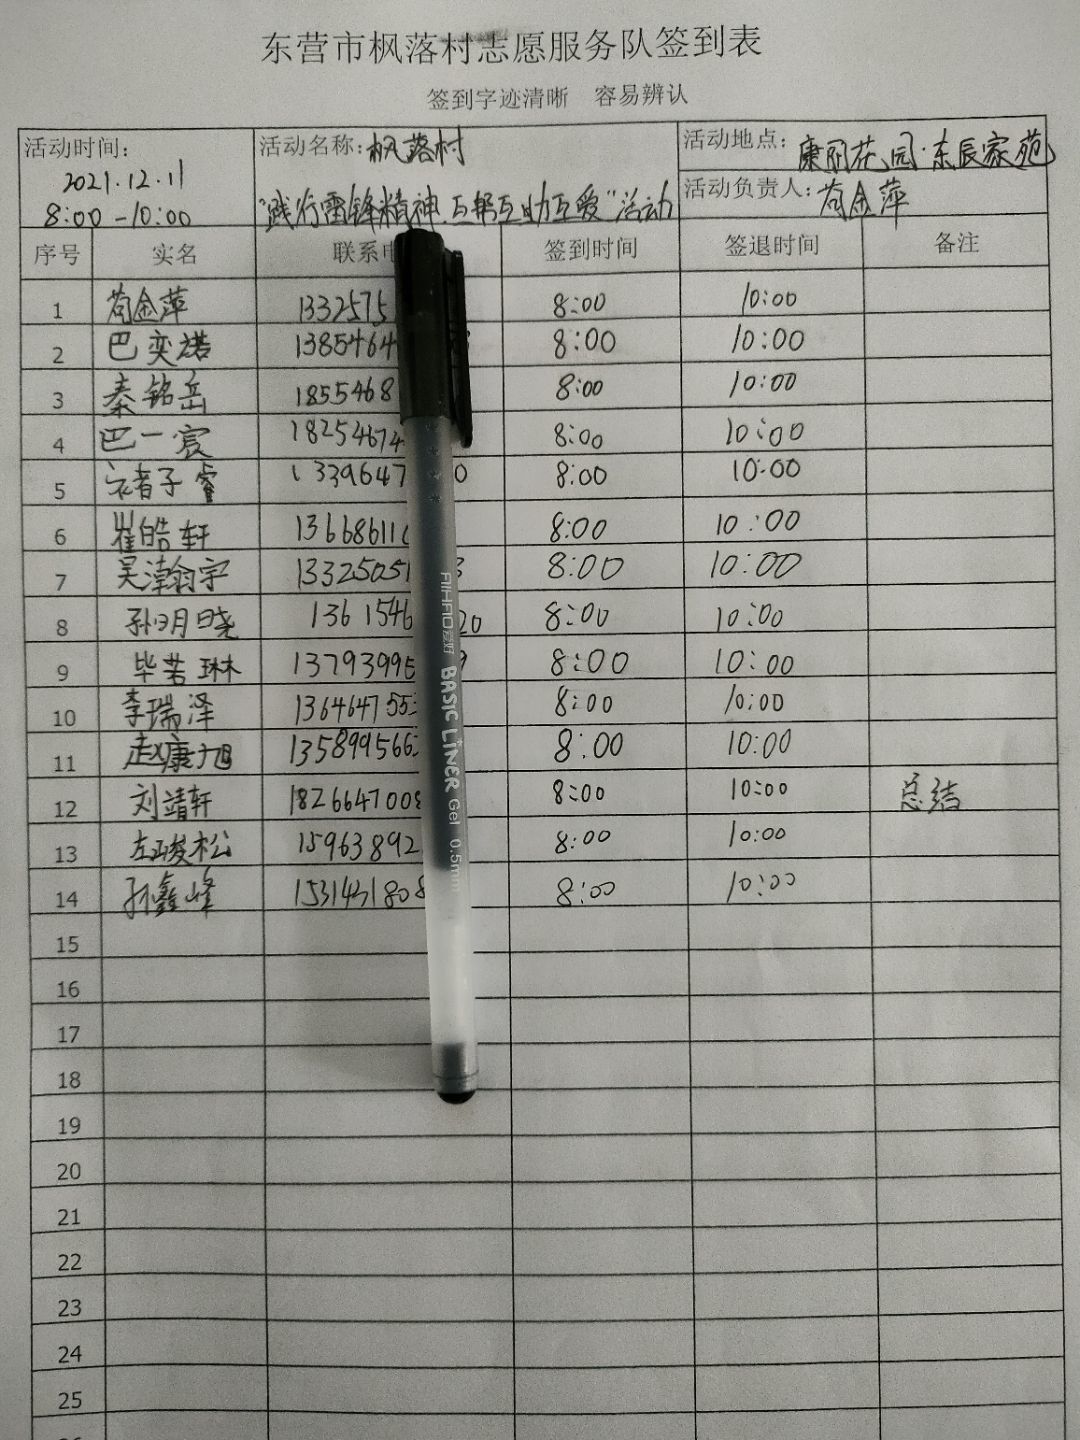 东营市枫落村志愿服务队签到表
签到字迹清晰 容易辨认
活动时间: 2021.12.11 8:00-10:00
活动名称: 枫落村
"践行雷锋精神.互帮互助互爱"活动
活动地点: 康丽花园·东辰家苑
活动负责人: 苟金萍
序号 实名 联系 签到时间 签退时间 备注
1 苟金萍 1332575 8:00 10:00
2 巴奕诺 1385464 8:00 10:00
3 秦铭岳 1855468 8:00 10:00
4 巴一宸 18254674 8:00 10:00
5 褚子睿 1339647 0 8:00 10:00
6 崔皓轩 13668611 8:00 10:00
7 吴瀚宇 13325051 8:00 10:00
8 孙明晓 1361546 20 8:00 10:00
9 毕若琳 13793995 9 8:00 10:00
10 李瑞泽 1364647553 8:00 10:00
11 赵康旭 135899566 8:00 10:00
12 刘靖轩 1826647008 8:00 10:00 总结
13 左骏松 15963892 8:00 10:00
14 孙鑫峰 1531431808 8:00 10:00
15
16
17
18
19
20
21
22
23
24
25
AIHAO爱好 BASIC LINER Gel 0.5mm